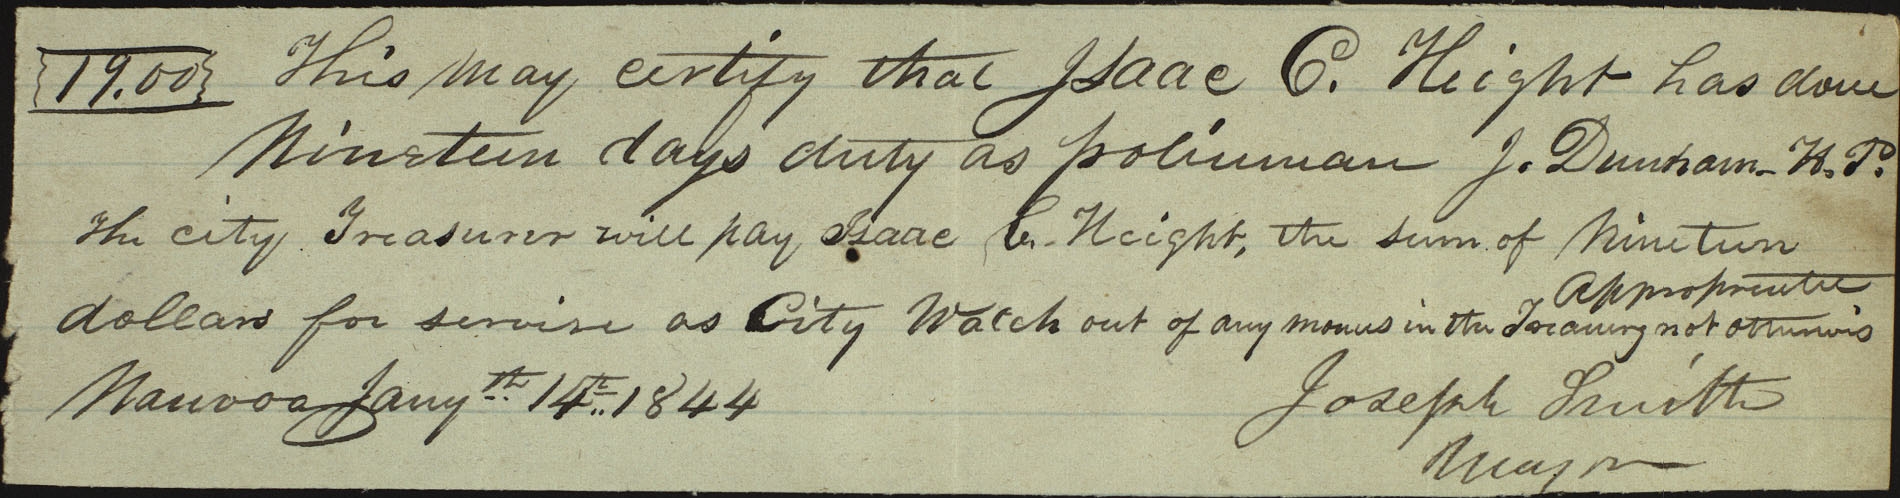 19.00 This may certify that Isaac C. Height has done
Nineteen days duty as policeman J. Dunham- H.P.
The city Treasurer will pay Isaac C. Height, the sum of Nineteen
dollars for servise as City Watch out of any monies in the Treasury not otherwis
Appropriated
Nauvoo Jany th 14th 1844
Joseph Smith
Mayor